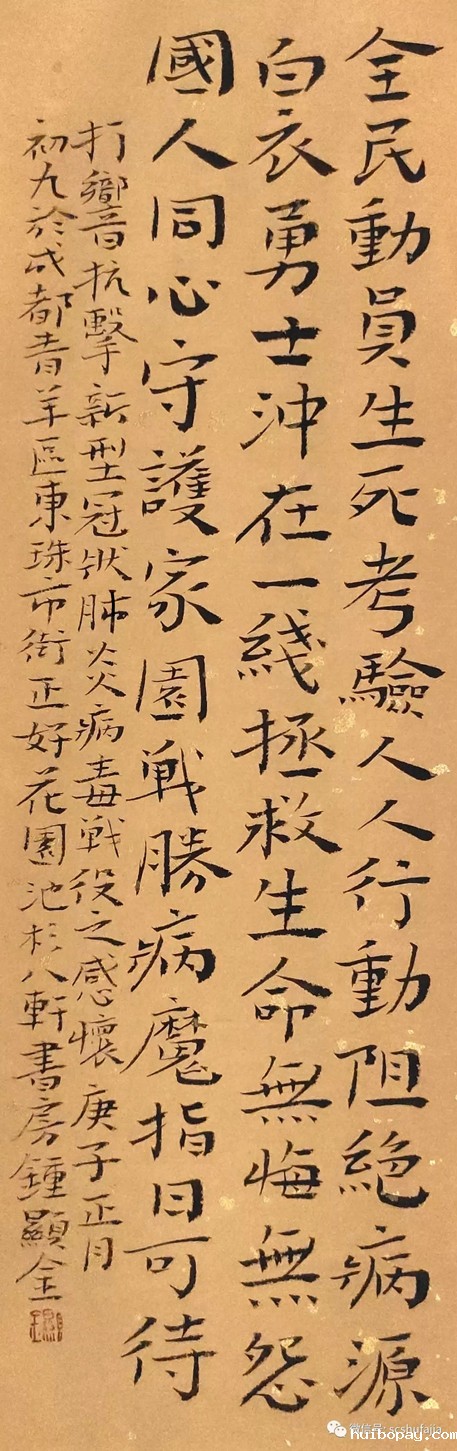 全民動員生死考驗人人行動阻絕病源
白衣勇士沖在一綫拯救生命無悔無怨
國人同心守護家園戰勝病魔指日可待
打響抗擊新型冠狀肺炎病毒戰役之感懷庚子正月
初九於成都青羊區東珠市街正好花園池杉八軒書房鍾顯金
微信号: scshufajia
huibopay.com